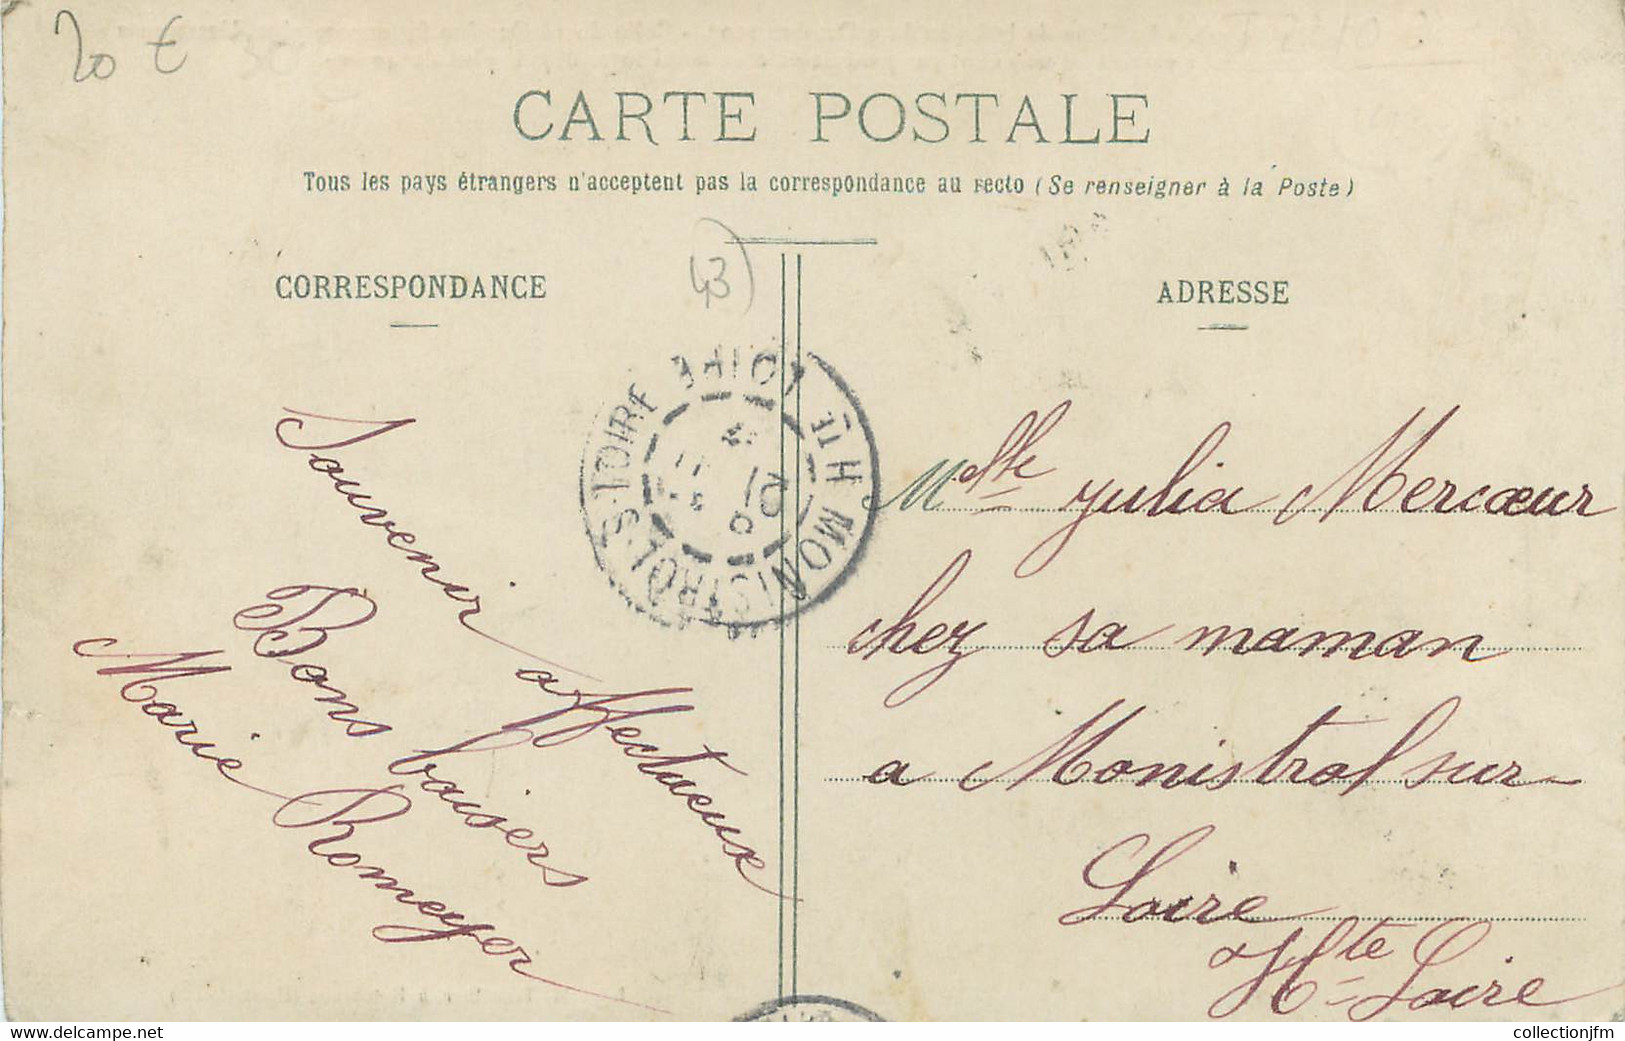 20 €
CARTE POSTALE
Tous les pays étrangers n'acceptent pas la correspondance au recto (Se renseigner à la Poste)
43)
CORRESPONDANCE
ADRESSE
MONISTROL-S-LOIRE Hte LOIRE
Souvenir affectueux
Bons baisers
Marie Romeyer
Mlle Julia Mercœur
chez sa maman
a Monistrol sur
Loire
Hte Loire
collectionjfm